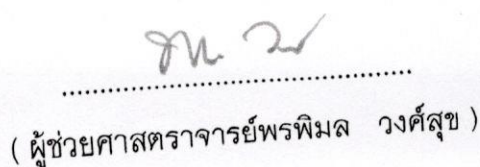 ( ผู้ช่วยศาสตราจารย์พรพิมล วงศ์สุข )